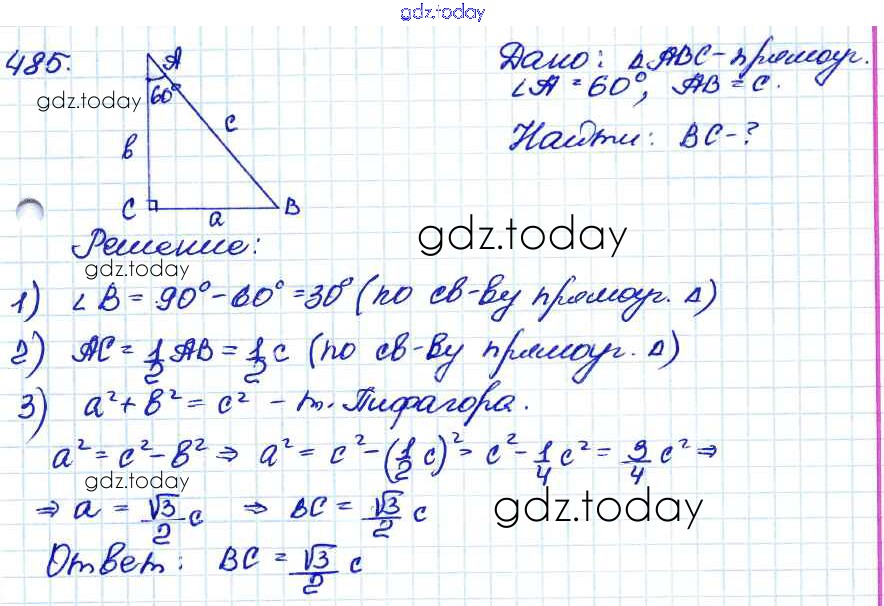 gdz.today
485.
A
60°
c
b
C
a
B
Дано: △ABC - прямоуг.
∠A = 60°, AB = c.
Найти: BC - ?
gdz.today
Решение:
gdz.today
gdz.today
1) ∠B = 90° - 60° = 30° (по св-ву прямоуг. △)
2) AC = 1/2 AB = 1/2 c (по св-ву прямоуг. △)
3) a² + b² = c² - т. Пифагора.
a² = c² - b² ⇒ a² = c² - (1/2 c)² = c² - 1/4 c² = 3/4 c² ⇒
gdz.today
⇒ a = √3/2 c ⇒ BC = √3/2 c
gdz.today
Ответ: BC = √3/2 c